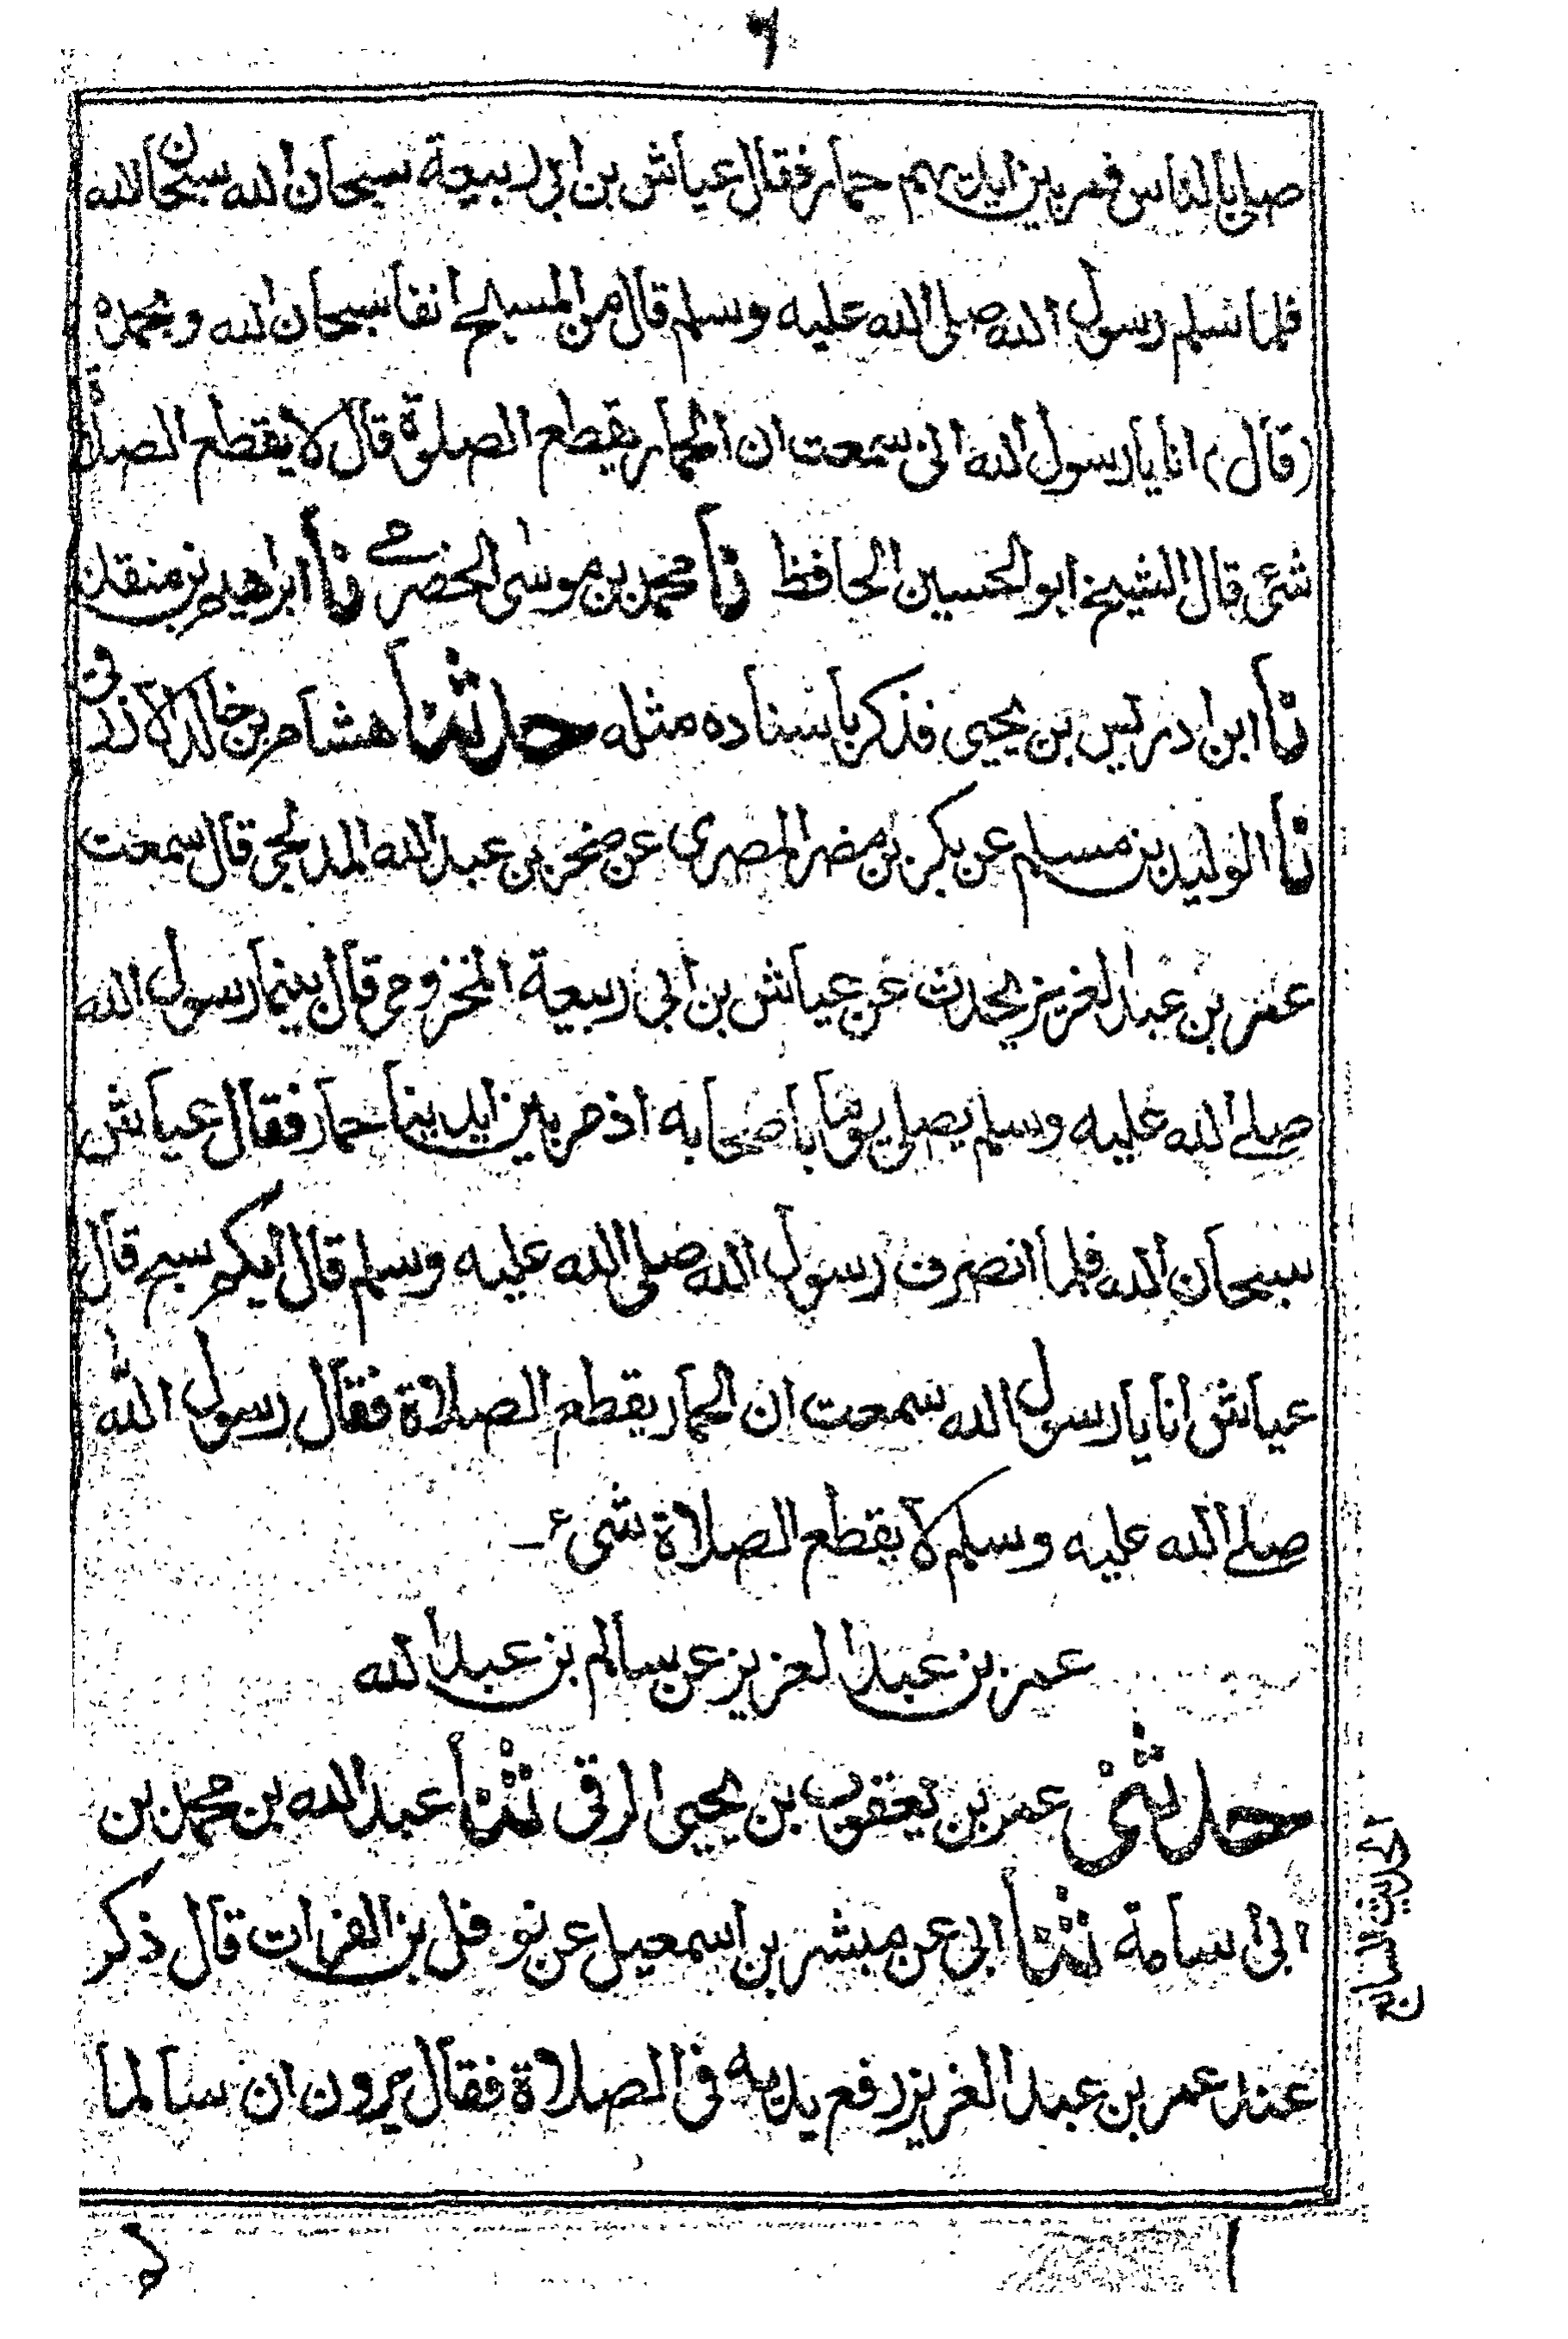 ٦
صلى بالناس فمر بين ايديهم حمار فقال عياش بن ابى ربيعة سبحان الله سبحان الله
فلما سلم رسول الله صلى الله عليه وسلم قال من المسبح انفا سبحان الله وبحمده
(قال) انا يا رسول الله انى سمعت ان الحمار يقطع الصلوة قال لا يقطع الصلاة
شئ قال الشيخ ابو الحسين الحافظ نا محمد بن موسى الحضرمى نا ابراهيم بن منقذ
نا ابن ادريس بن يحيى فذكر باسناده مثله حدثنا هشام بن خالد الازرق
نا الوليد بن مسلم عن بكر بن مضر المصرى عن صخر بن عبد الله المدلجى قال سمعت
عمر بن عبد العزيز يحدث عن عياش بن ابى ربيعة المخزومى قال بينما رسول الله
صلى الله عليه وسلم يصلى يوما باصحابه اذ مر بين ايدينا حمار فقال عياش
سبحان الله فلما انصرف رسول الله صلى الله عليه وسلم قال ايكم سبح قال
عياش انا يا رسول الله سمعت ان الحمار يقطع الصلاة فقال رسول الله
صلى الله عليه وسلم لا يقطع الصلاة شىء
عمر بن عبد العزيز عن سالم بن عبد الله
حدثنى عمر بن يعقوب بن يحيى الرقى ثنا عبد الله بن محمد بن
ابى اسامة ثنا ابى عن مبشر بن اسمعيل عن نوفل بن الفرات قال ذكر
عند عمر بن عبد العزيز رفع يديه فى الصلاة فقال يرون ان سالما